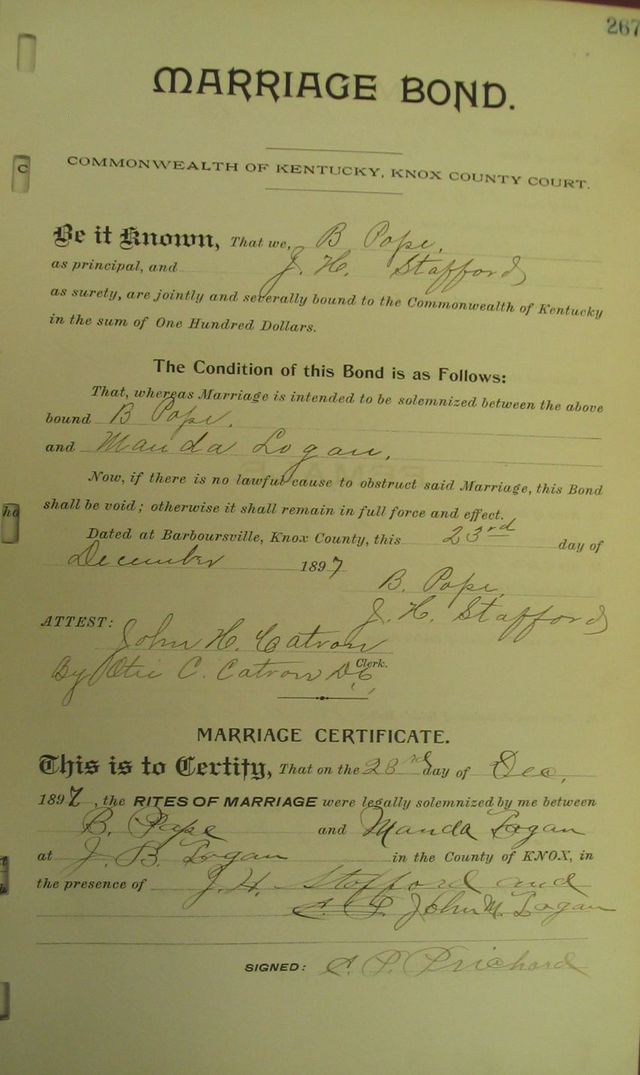 267
MARRIAGE BOND.
COMMONWEALTH OF KENTUCKY, KNOX COUNTY COURT.
Be it Known, That we, B Pope,
as principal, and J. H. Stafford
as surety, are jointly and severally bound to the Commonwealth of Kentucky
in the sum of One Hundred Dollars.
The Condition of this Bond is as Follows:
That, whereas Marriage is intended to be solemnized between the above
bound B Pope,
and Manda Logan,
Now, if there is no lawful cause to obstruct said Marriage, this Bond
shall be void; otherwise it shall remain in full force and effect.
Dated at Barboursville, Knox County, this 23rd day of
December 1897
B. Pope,
J. H. Stafford
ATTEST:
John H. Catron
Clerk.
By Otie C. Catron D.C.
MARRIAGE CERTIFICATE.
This is to Certify, That on the 23rd day of Dec,
1897, the RITES OF MARRIAGE were legally solemnized by me between
B. Pope and Manda Logan
at J. B. Logan in the County of KNOX, in
the presence of J. H. Stafford and
John M. Logan
SIGNED: S. P. Prichard